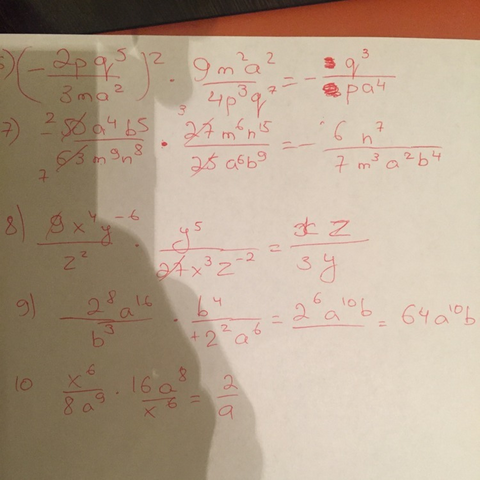 6) (- 2pq⁵ / 3ma²)² · 9m²a² / 4p³q⁷ = - q³ / pa⁴
7) - ²50a⁴b⁵ / ₇63m⁹n⁸ · ³27m⁶n¹⁵ / 25a⁶b⁹ = - 6n⁷ / 7m³a²b⁴
8) 9x⁴y⁻⁶ / z² · y⁵ / 27x³z⁻² = x z / 3y
9) 2⁸a¹⁶ / b³ · b⁴ / +2²a⁶ = 2⁶a¹⁰b = 64a¹⁰b
10 x⁶ / 8a⁹ · 16a⁸ / x⁶ = 2 / a